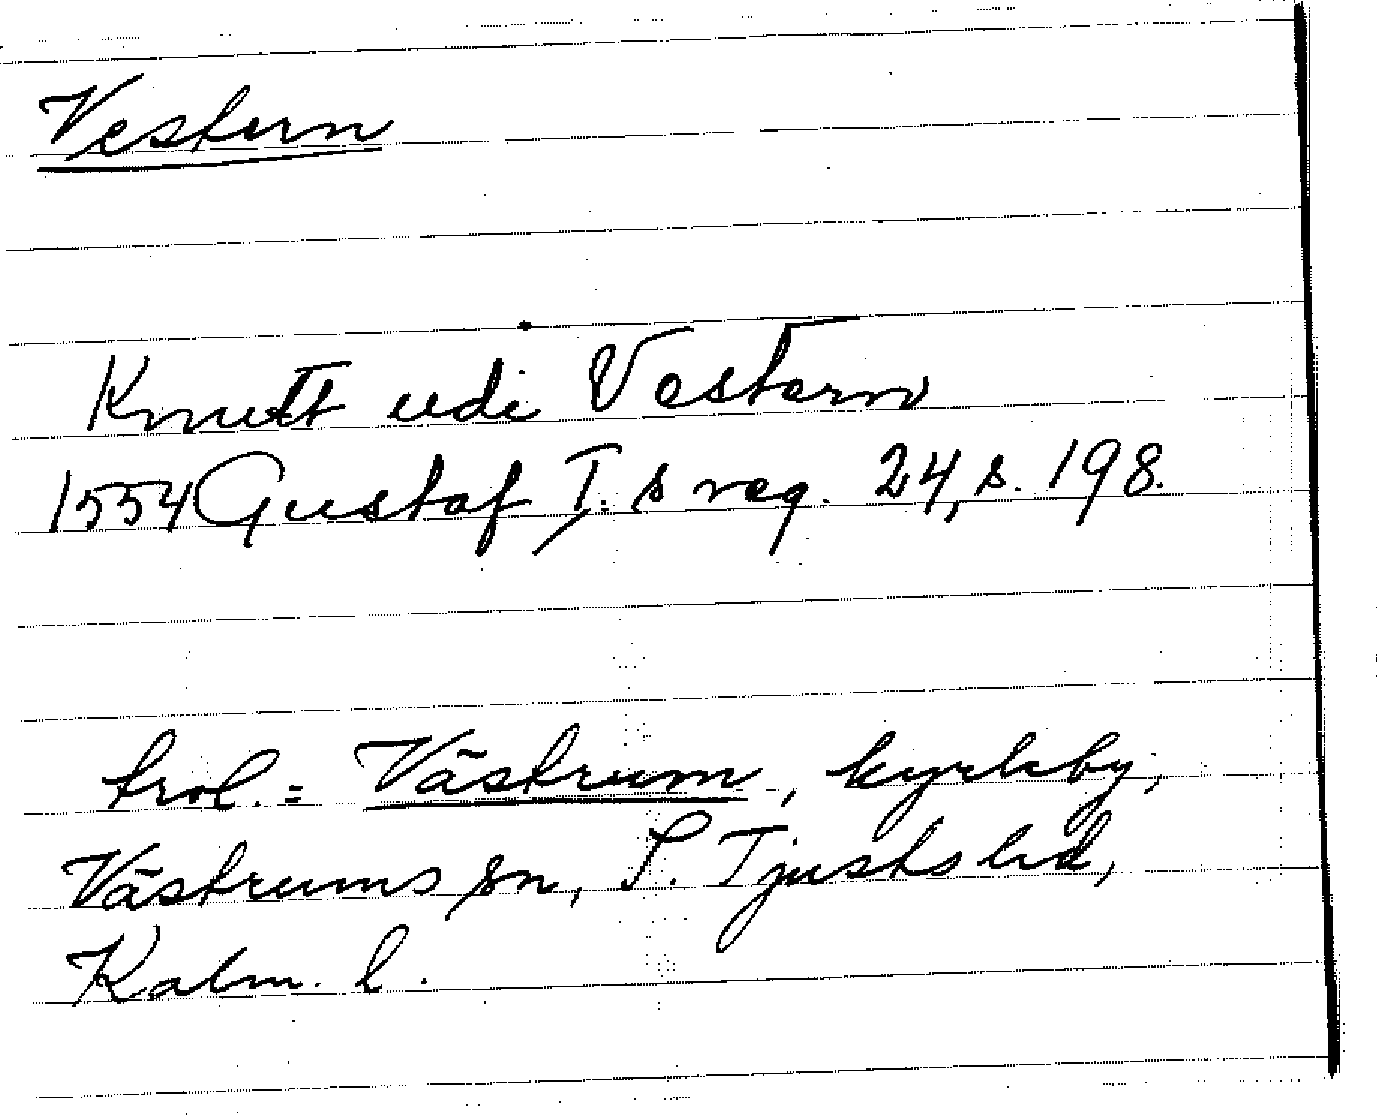 Vestern
Knutt udi Vestern
1554 Gustaf I:s reg. 24, s. 198.
trol. = Västrum, kyrkby,
Västrums sn, S. Tjusts hd,
Kalm. l.